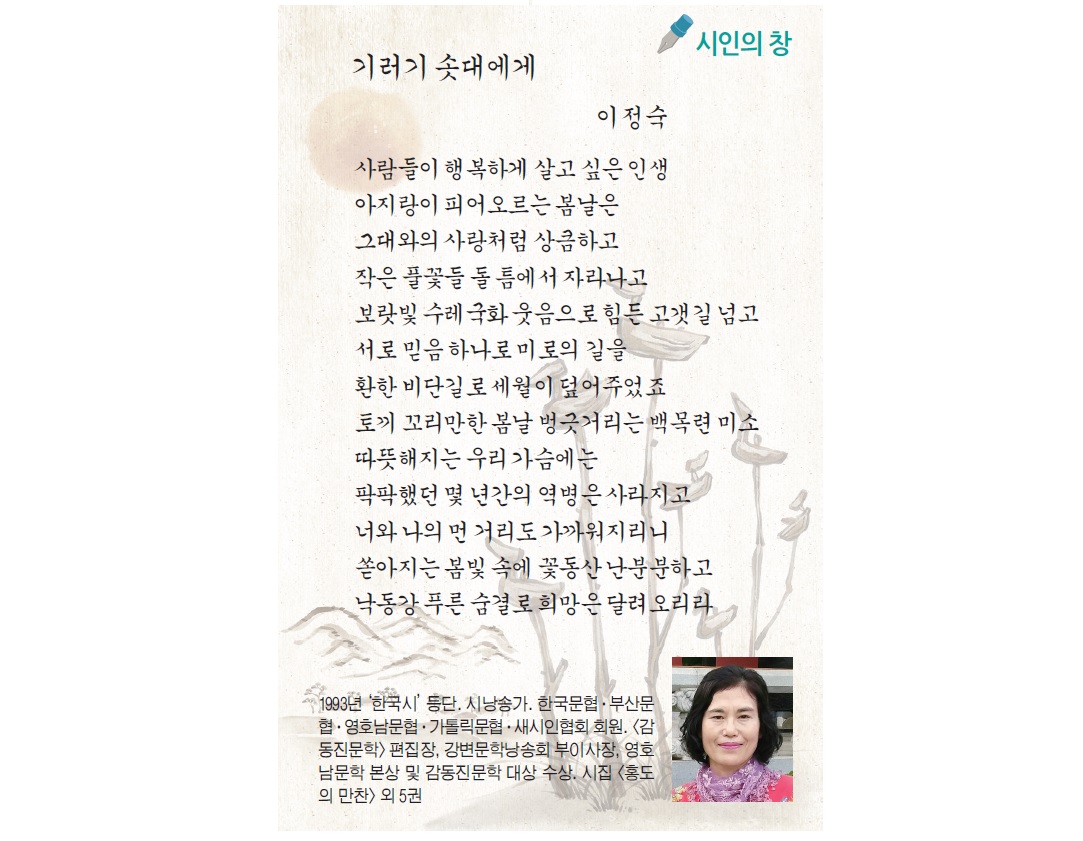 시인의 창
기러기 솟대에게
이정숙
사람들이 행복하게 살고 싶은 인생
아지랑이 피어오르는 봄날은
그대와의 사랑처럼 상큼하고
작은 풀꽃들 돌 틈에서 자라나고
보랏빛 수레국화 웃음으로 힘든 고갯길 넘고
서로 믿음 하나로 미로의 길을
환한 비단길로 세월이 덮어주었죠
토끼 꼬리만한 봄날 벙긋거리는 백목련 미소
따뜻해지는 우리 가슴에는
팍팍했던 몇 년간의 역병은 사라지고
너와 나의 먼 거리도 가까워지리니
쏟아지는 봄빛 속에 꽃동산 난분분하고
낙동강 푸른 숨결로 희망은 달려오리라
1993년 ‘한국시’ 등단. 시낭송가. 한국문협·부산문
협·영호남문협·가톨릭문협·새시인협회 회원. 〈감
동진문학〉 편집장, 강변문학낭송회 부이사장, 영호
남문학 본상 및 감동진문학 대상 수상. 시집 〈홍도
의 만찬〉 외 5권